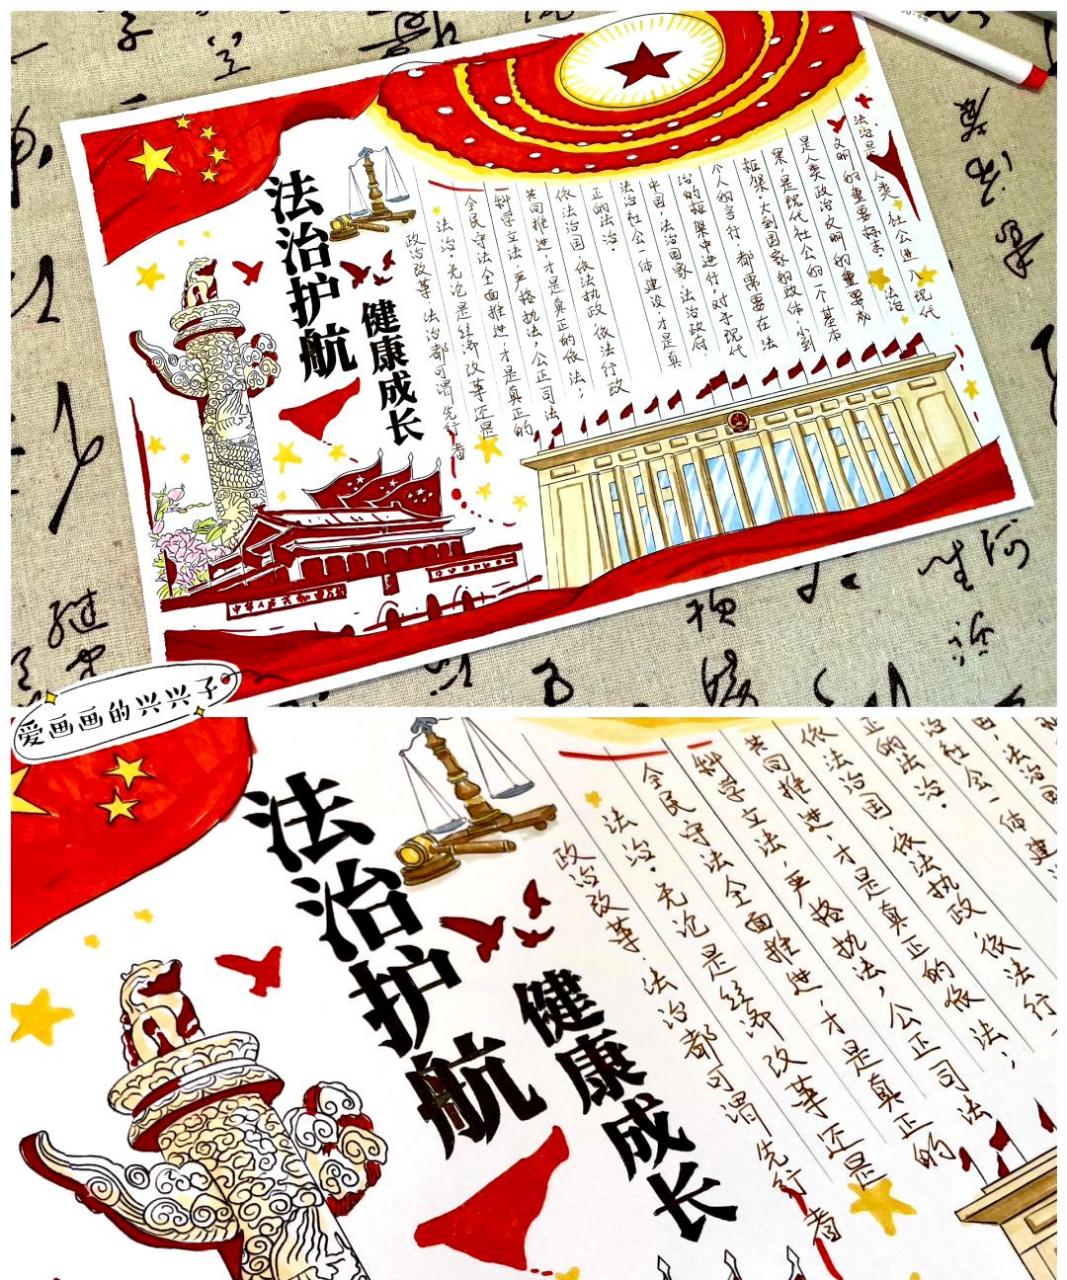 法治护航
健康成长
法治是人类社会进入现代
文明的重要标志。法治
是人类政治文明的重要成
果,是现代社会的一个基本
框架。大到国家的政体,小到
个人的言行,都需要在法
治的框架中进行。对于现代
中国,法治国家、法治政府、
法治社会一体建设,才是真
正的法治。
依法治国 依法执政 依法行政
共同推进,才是真正的依法;
科学立法,严格执法,公正司法
全民守法全面推进,才是真正的
法治。无论是经济改革还是
政治改革,法治都可谓先行者
爱画画的兴兴子
法治护航
健康成长
法治国
治社会一体建
正的法治。
依法治国 依法执政 依法行
共同推进,才是真正的依法;
科学立法,严格执法,公正司法
全民守法全面推进,才是真正的
法治。无论是经济改革还是
政治改革,法治都可谓先行者